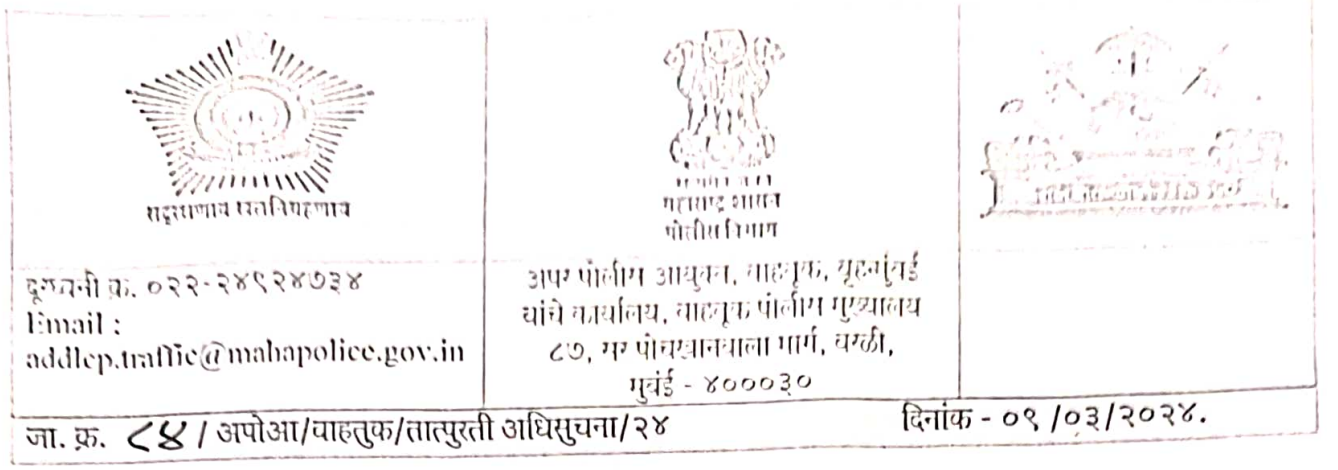 सद्रक्षणाय खलनिग्रहणाय
महाराष्ट्र शासन
पोलीस विभाग
दूरध्वनी क्र. ०२२-२४९२४७३४
Email :
addlcp.traffic@mahapolice.gov.in
अपर पोलीस आयुक्त, वाहतूक, बृहन्मुंबई
यांचे कार्यालय, वाहतूक पोलीस मुख्यालय
८७, सर पोचखानवाला मार्ग, वरळी,
मुबंई - ४०००३०
जा. क्र. ८४ / अपोआ/वाहतुक/तात्पुरती अधिसुचना/२४
दिनांक - ०९ /०३/२०२४.